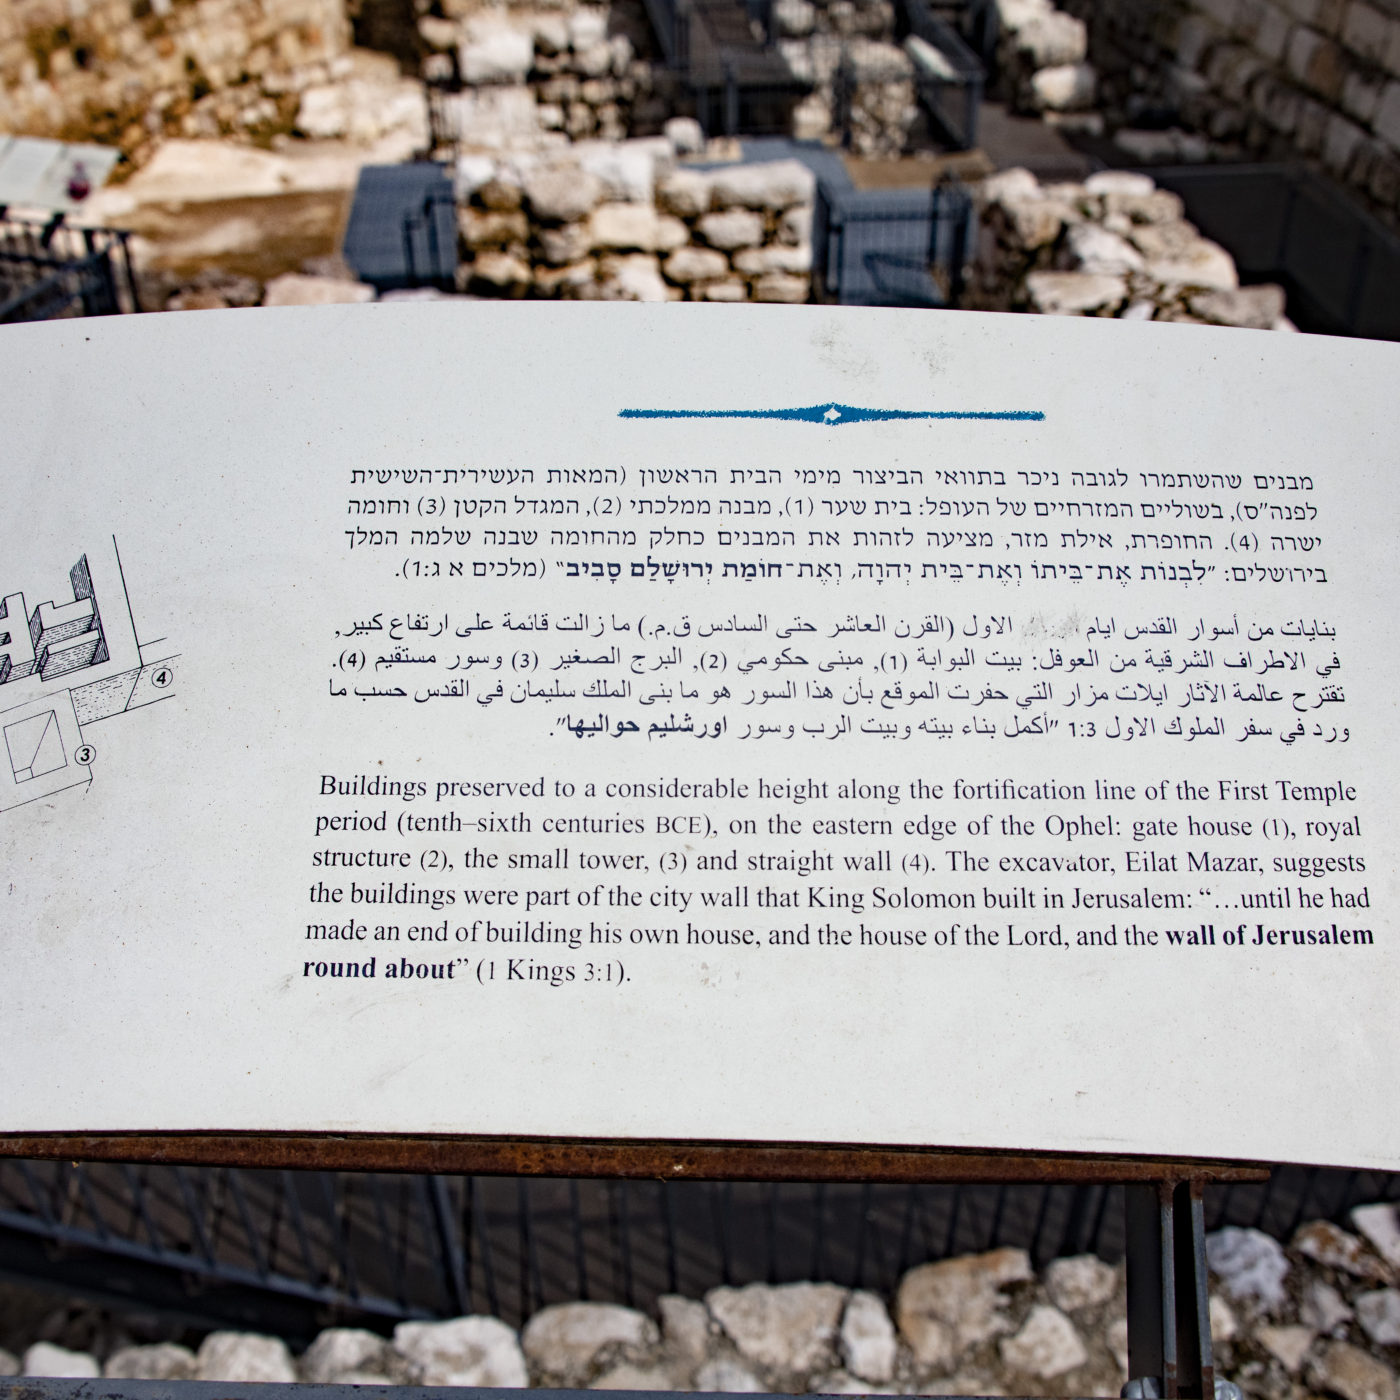 מבנים שהשתמרו לגובה ניכר בתוואי הביצור מימי הבית הראשון (המאות העשירית־השישית
לפנה"ס), בשוליים המזרחיים של העופל: בית שער (1), מבנה ממלכתי (2), המגדל הקטן (3) וחומה
ישרה (4). החופרת, אילת מזר, מציעה לזהות את המבנים כחלק מהחומה שבנה שלמה המלך
בירושלים: "לִבְנוֹת אֶת־בֵּיתוֹ וְאֶת־בֵּית יְהוָה, וְאֶת־חוֹמַת יְרוּשָׁלַם סָבִיב" (מלכים א ג:1).
بنايات من أسوار القدس ايام الاول (القرن العاشر حتى السادس ق.م.) ما زالت قائمة على ارتفاع كبير,
في الاطراف الشرقية من العوفل: بيت البوابة (1), مبنى حكومي (2), البرج الصغير (3) وسور مستقيم (4).
تقترح عالمة الآثار ايلات مزار التي حفرت الموقع بأن هذا السور هو ما بنى الملك سليمان في القدس حسب ما
ورد في سفر الملوك الاول 1:3 "أكمل بناء بيته وبيت الرب وسور اورشليم حواليها".
Buildings preserved to a considerable height along the fortification line of the First Temple
period (tenth–sixth centuries BCE), on the eastern edge of the Ophel: gate house (1), royal
structure (2), the small tower, (3) and straight wall (4). The excavator, Eilat Mazar, suggests
the buildings were part of the city wall that King Solomon built in Jerusalem: “…until he had
made an end of building his own house, and the house of the Lord, and the wall of Jerusalem
round about” (1 Kings 3:1).
4
3